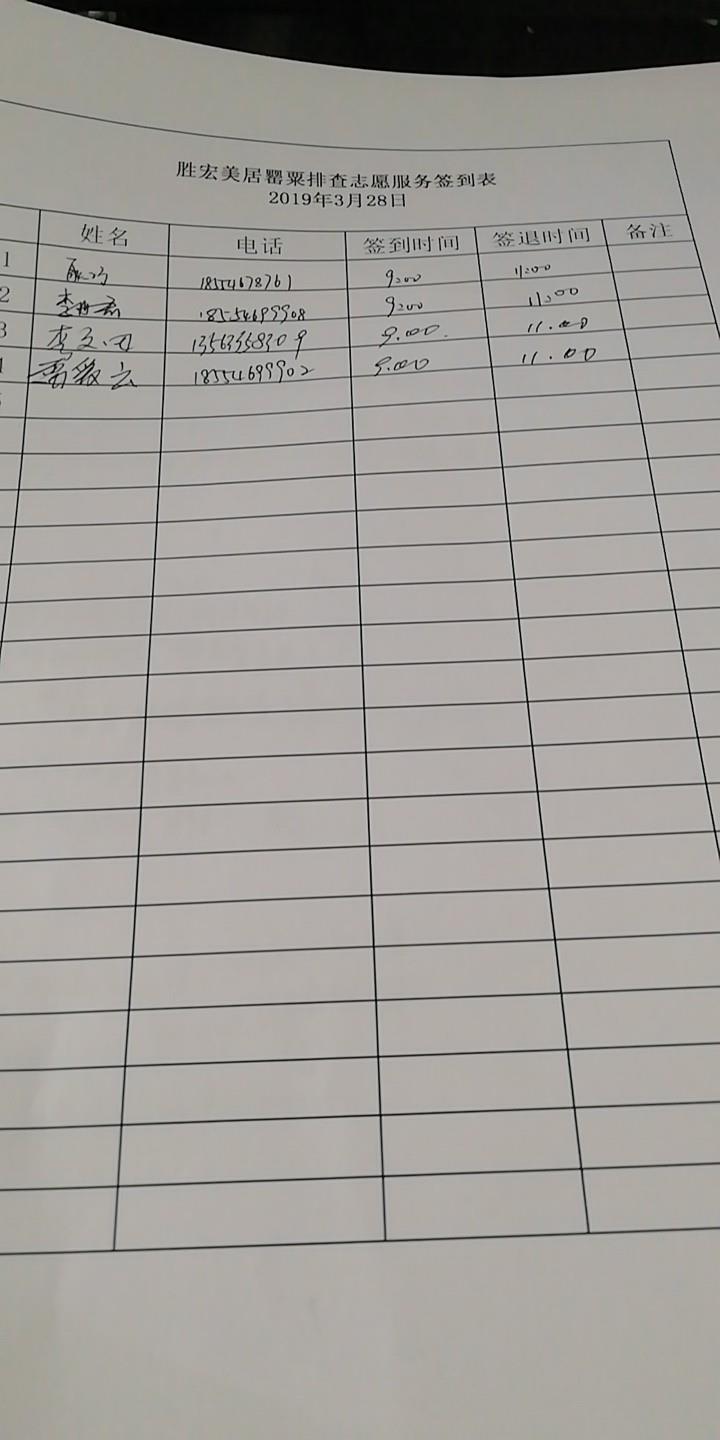 胜宏美居罂粟排查志愿服务签到表
2019年3月28日
姓名 电话 签到时间 签退时间 备注
1 18554678761 9:00 11:00
2 18554699908 9:00 11:00
3 李文 13563358309 9.00 11.00
4 云 18554699902 9.00 11.00
5